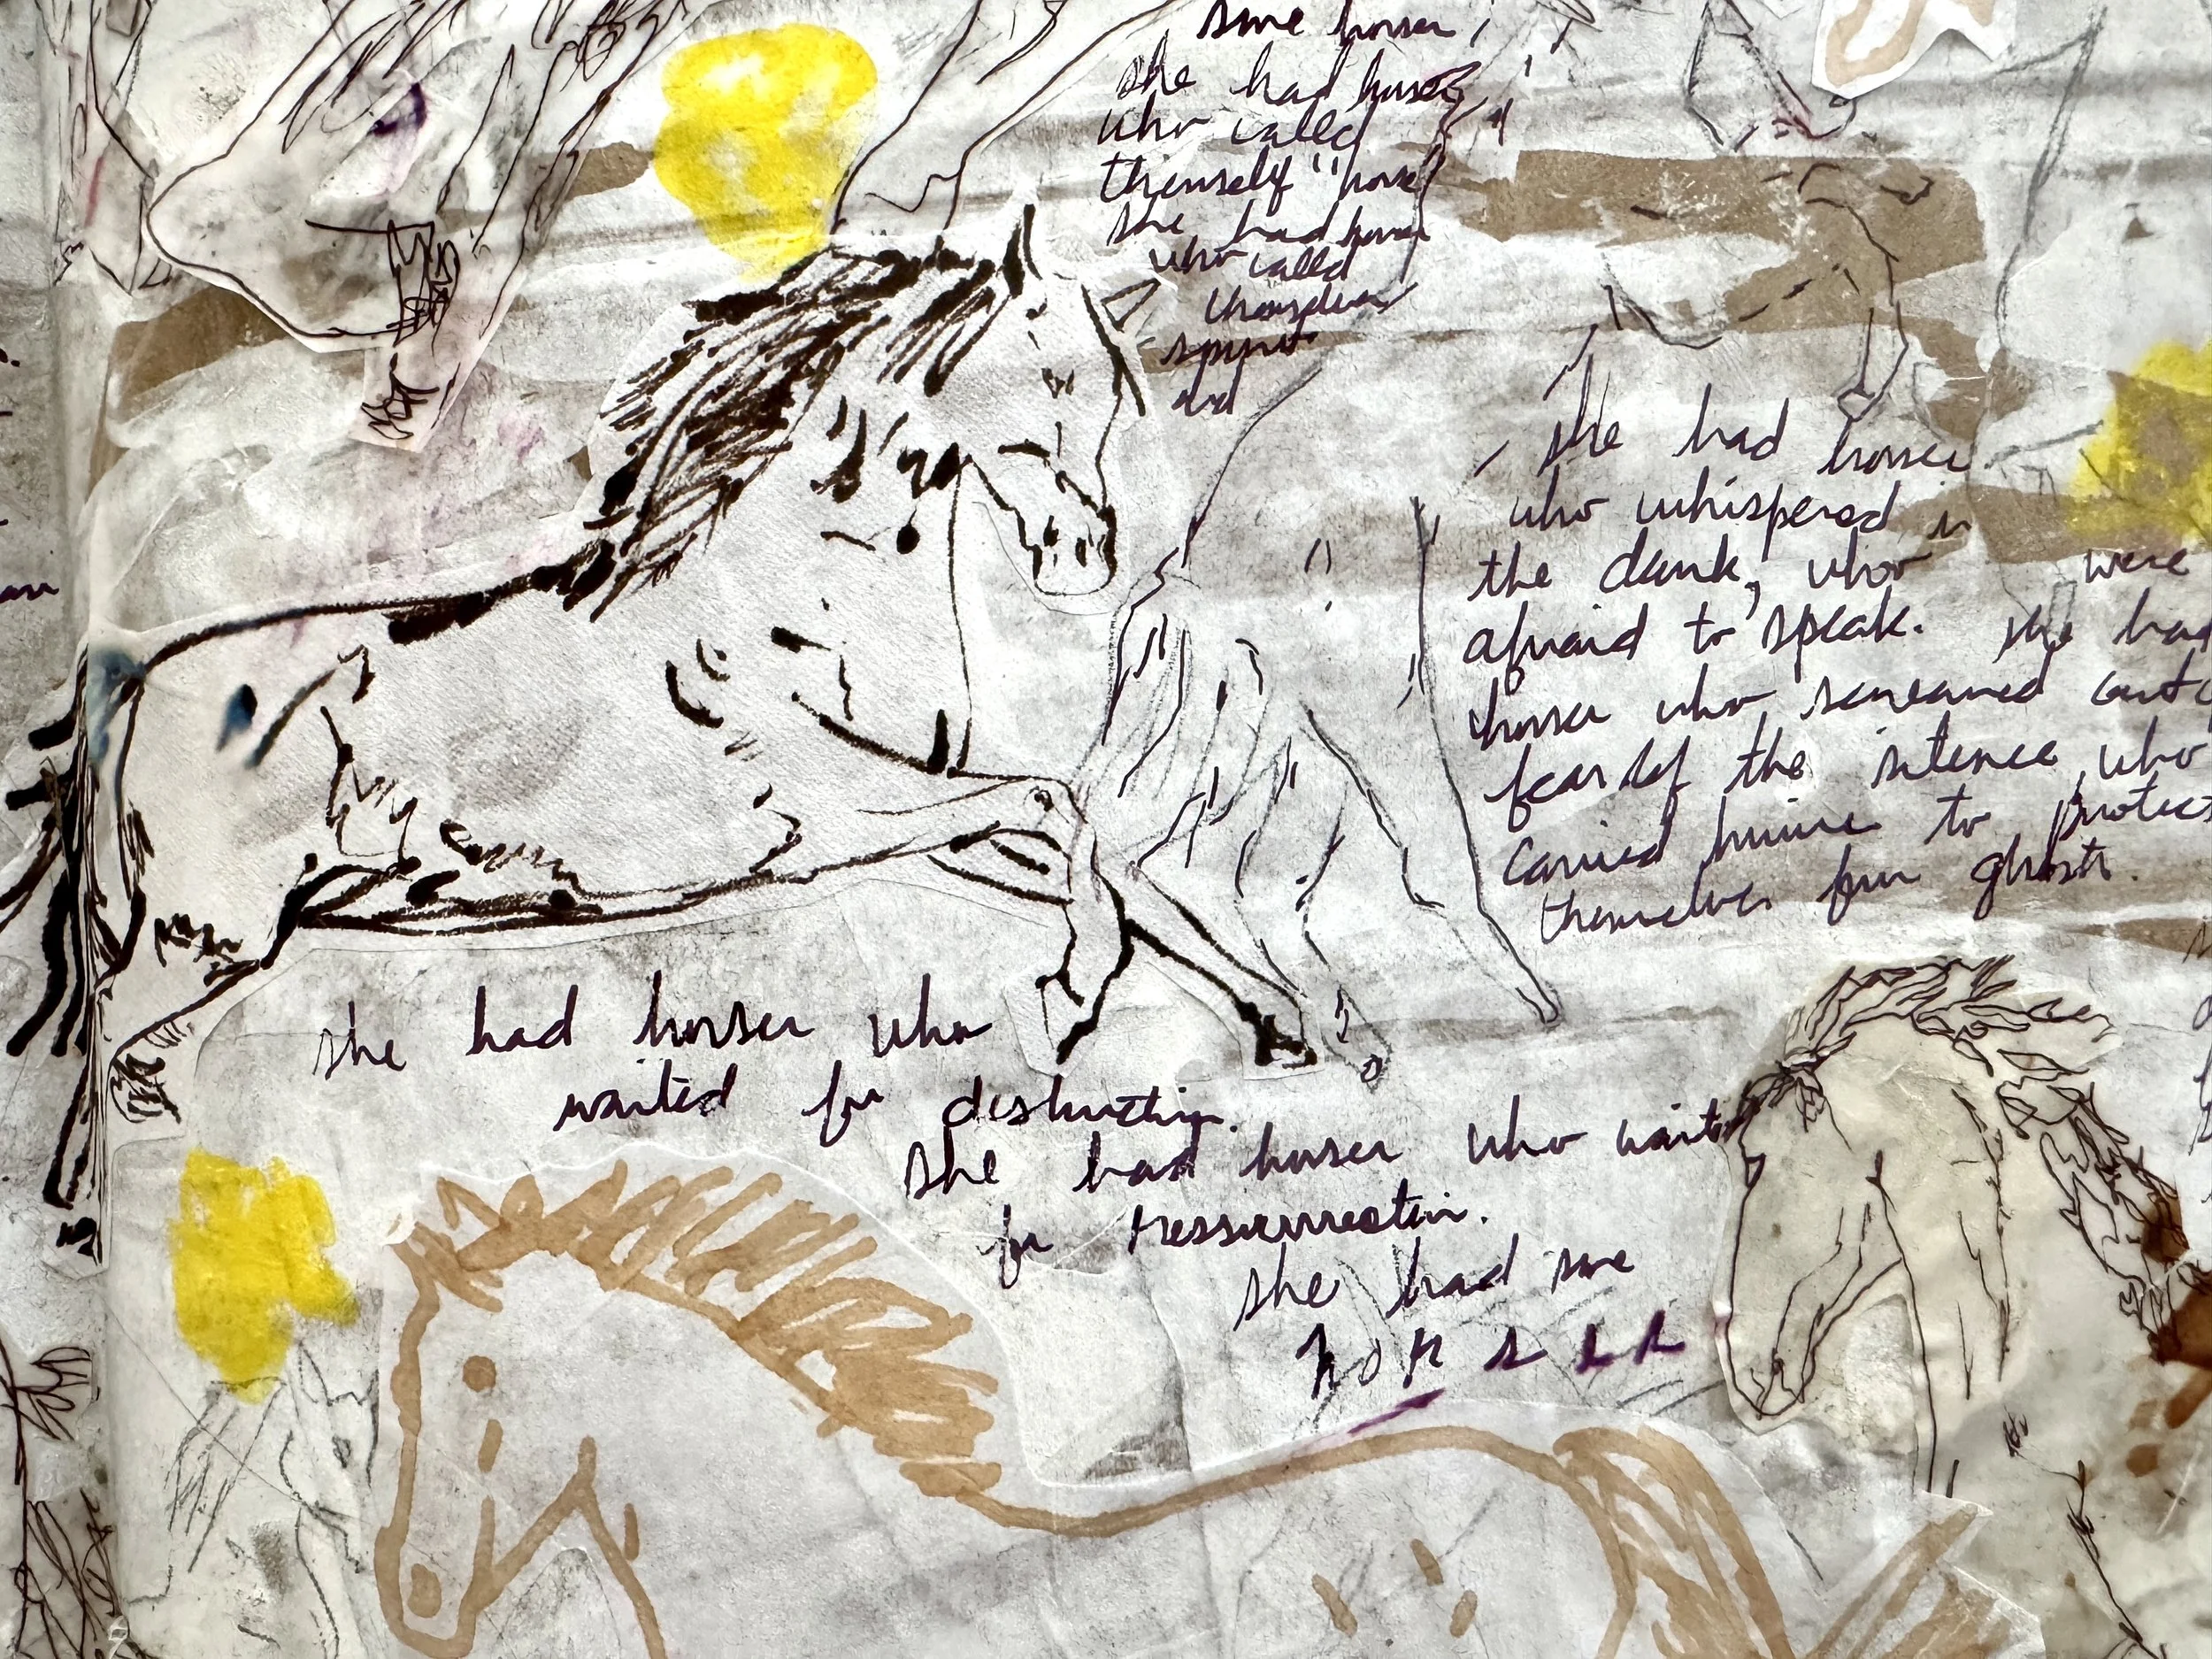 some horses,
she had horses
who called
themself "horse
she had horses
who called
themselves
spirit
and
she had horses
who whispered in
the dark, who were
afraid to speak. she had
horses who screamed out
fear of the silence, who
carried knives to protect
themselves from ghosts.
she had horses who
waited for destruction.
she had horses who waited
for ressurrection.
she had some
horses